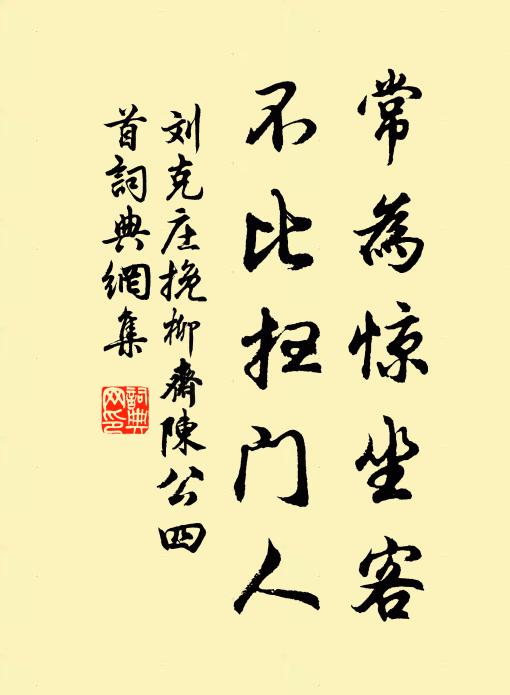 常為惊坐客
不比扫门人
刘克庄挽柳齋陳公四
首詞典網集
詞典网印